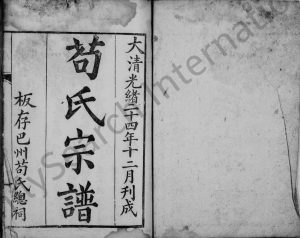 大清光緒二十四年十二月刊成
苟氏宗譜
板存巴州苟氏總祠